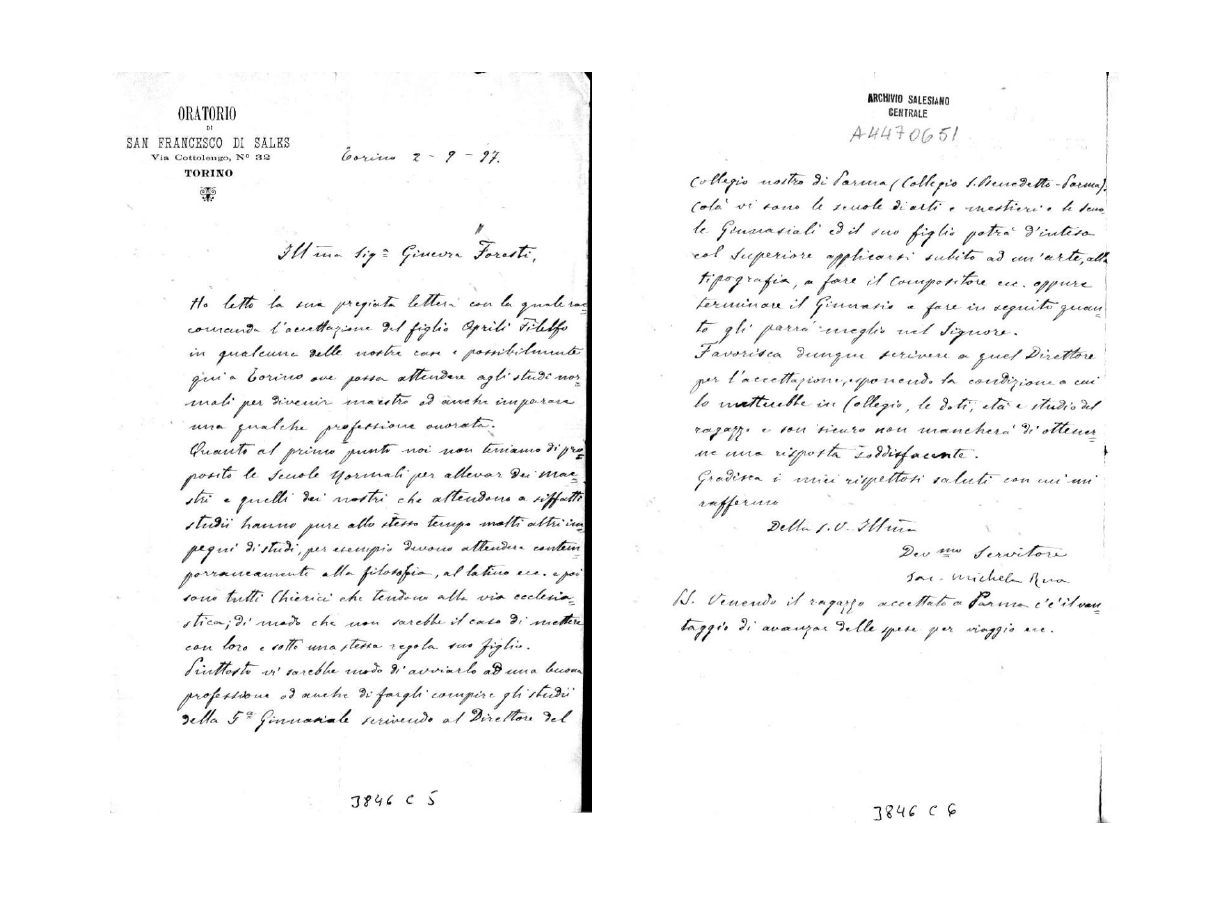 ORATORIO
DI
SAN FRANCESCO DI SALES
Via Cottolengo, Nº 32
TORINO
Torino 2 - 9 - 97.
Ill ma Sig.ª Ginevra Foresti,
Ho letto la sua pregiata lettera con la quale rac=
comanda l'accettazione del figlio Aprili Filelfo
in qualcuna delle nostre case e possibilmente
qui a Torino ove possa attendere agli studi nor=
mali per divenir maestro od anche imparare
una qualche professione onorata.
Quanto al primo punto noi non teniamo di pro=
posito le Scuole Normali per allevar dei mae=
stri e quelli dei nostri che attendono a siffatti
studii hanno pure allo stesso tempo molti altri im=
pegni di studi, per esempio devono attendere contem=
porraneamente alla filosofia, al latino ecc. e poi
sono tutti Chierici che tendono alla via ecclesia=
stica; di modo che non sarebbe il caso di mettere
con loro e sotto una stessa regola suo figlio.
Piuttosto vi sarebbe modo di avviarlo ad una buona
professione od anche di fargli compire gli studii
della 5ª Ginnasiale scrivendo al Direttore del
3846 C 5
ARCHIVIO SALESIANO
CENTRALE
A4470651
Collegio nostro di Parma (Collegio S. Benedetto - Parma).
Colà vi sono le scuole di arti e mestieri e le scuo
le Ginnasiali ed il suo figlio potrà d'intesa
col Superiore applicarsi subito ad un'arte, alla
tipografia, a fare il compositore ecc. oppure
terminare il Ginnasio e fare in seguito quan=
to gli parrà meglio nel Signore.
Favorisca dunque scrivere a quel Direttore
per l'accettazione, esponendo la condizione a cui
lo metterebbe in Collegio, le doti, età e studio del
ragazzo e son sicuro non mancherà di ottener=
ne una risposta soddisfacente.
Gradisca i miei rispettosi saluti con cui mi
raffermo
Della S.V. Ill.ma
Dev mo Servitore
Sac. Michele Rua
PS. Venendo il ragazzo accettato a Parma c'è il van=
taggio di avanzar delle spese per viaggio ecc.
3846 C 6